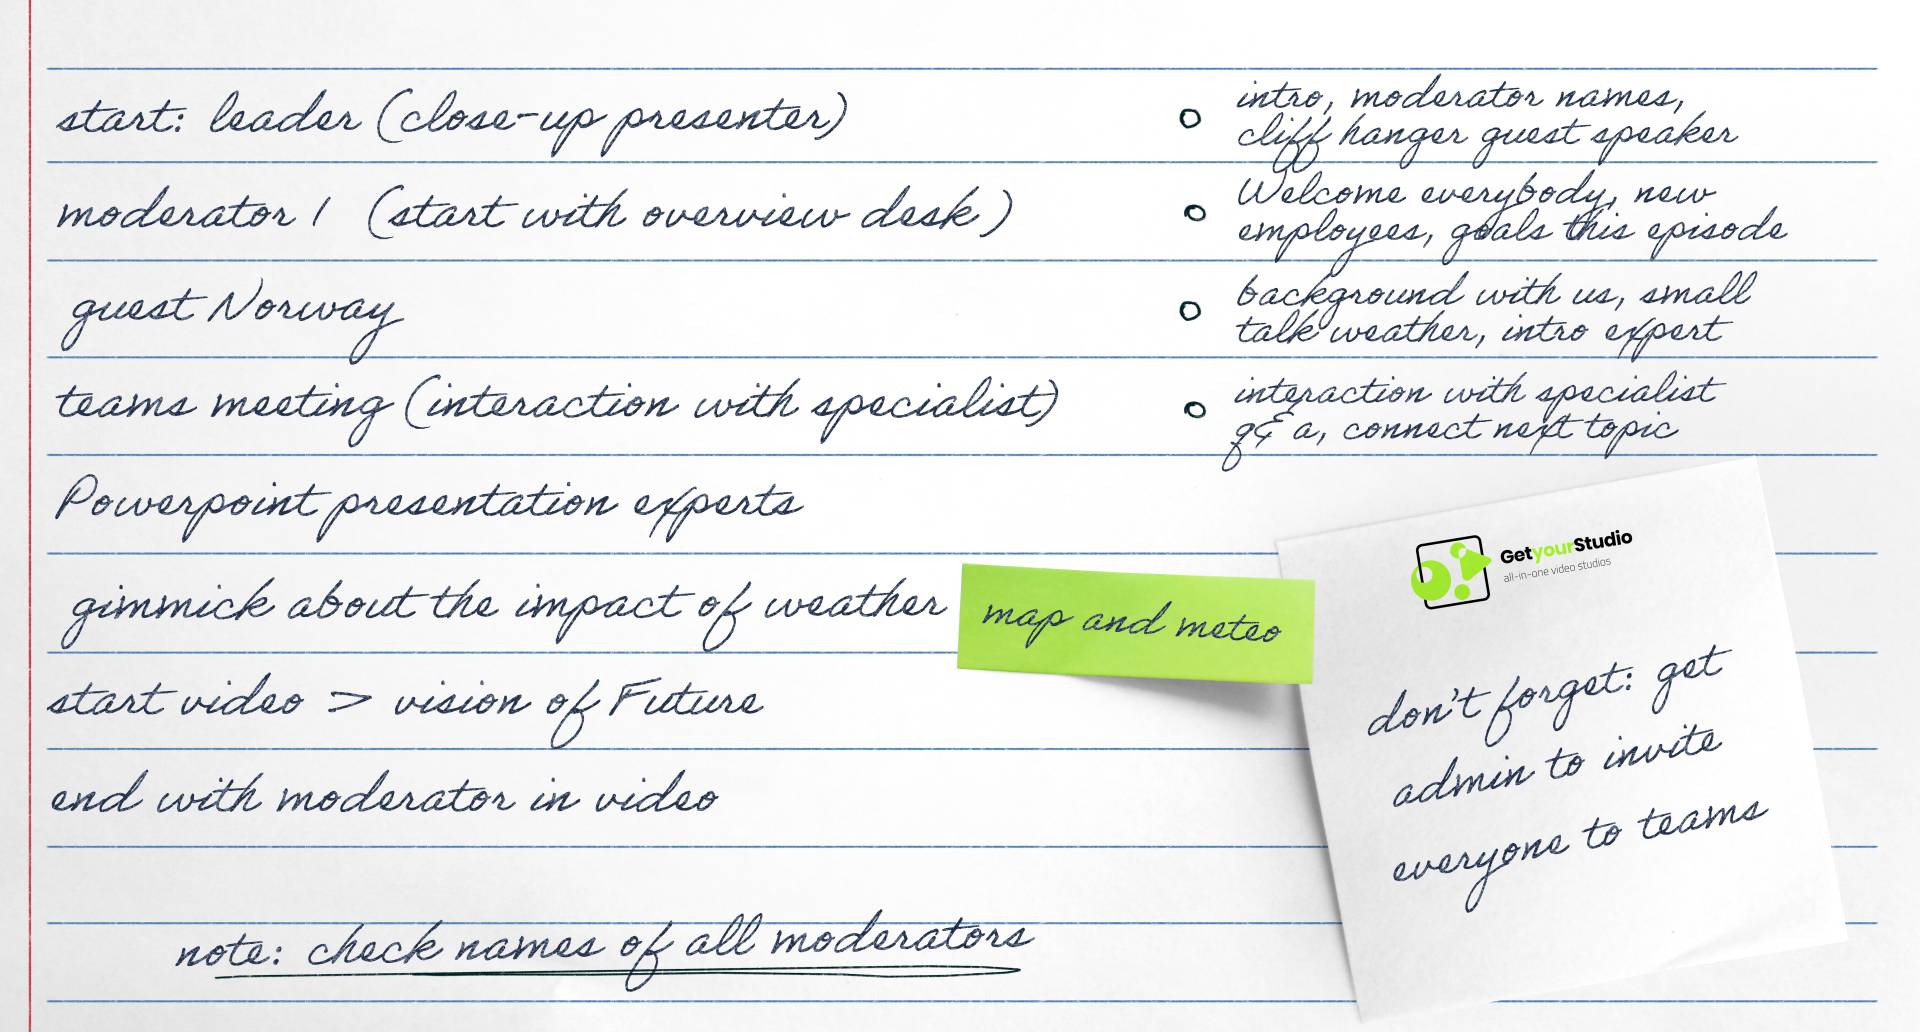 start: leader (close-up presenter)
intro, moderator names,
cliff hanger guest speaker
moderator 1 (start with overview desk)
Welcome everybody, new
employees, goals this episode
guest Norway
background with us, small
talk weather, intro expert
teams meeting (interaction with specialist)
interaction with specialist
q& a, connect next topic
Powerpoint presentation experts
gimmick about the impact of weather
map and meteo
start video > vision of Future
end with moderator in video
note: check names of all moderators
GetyourStudio
all-in-one video studios
don't forget: get
admin to invite
everyone to teams